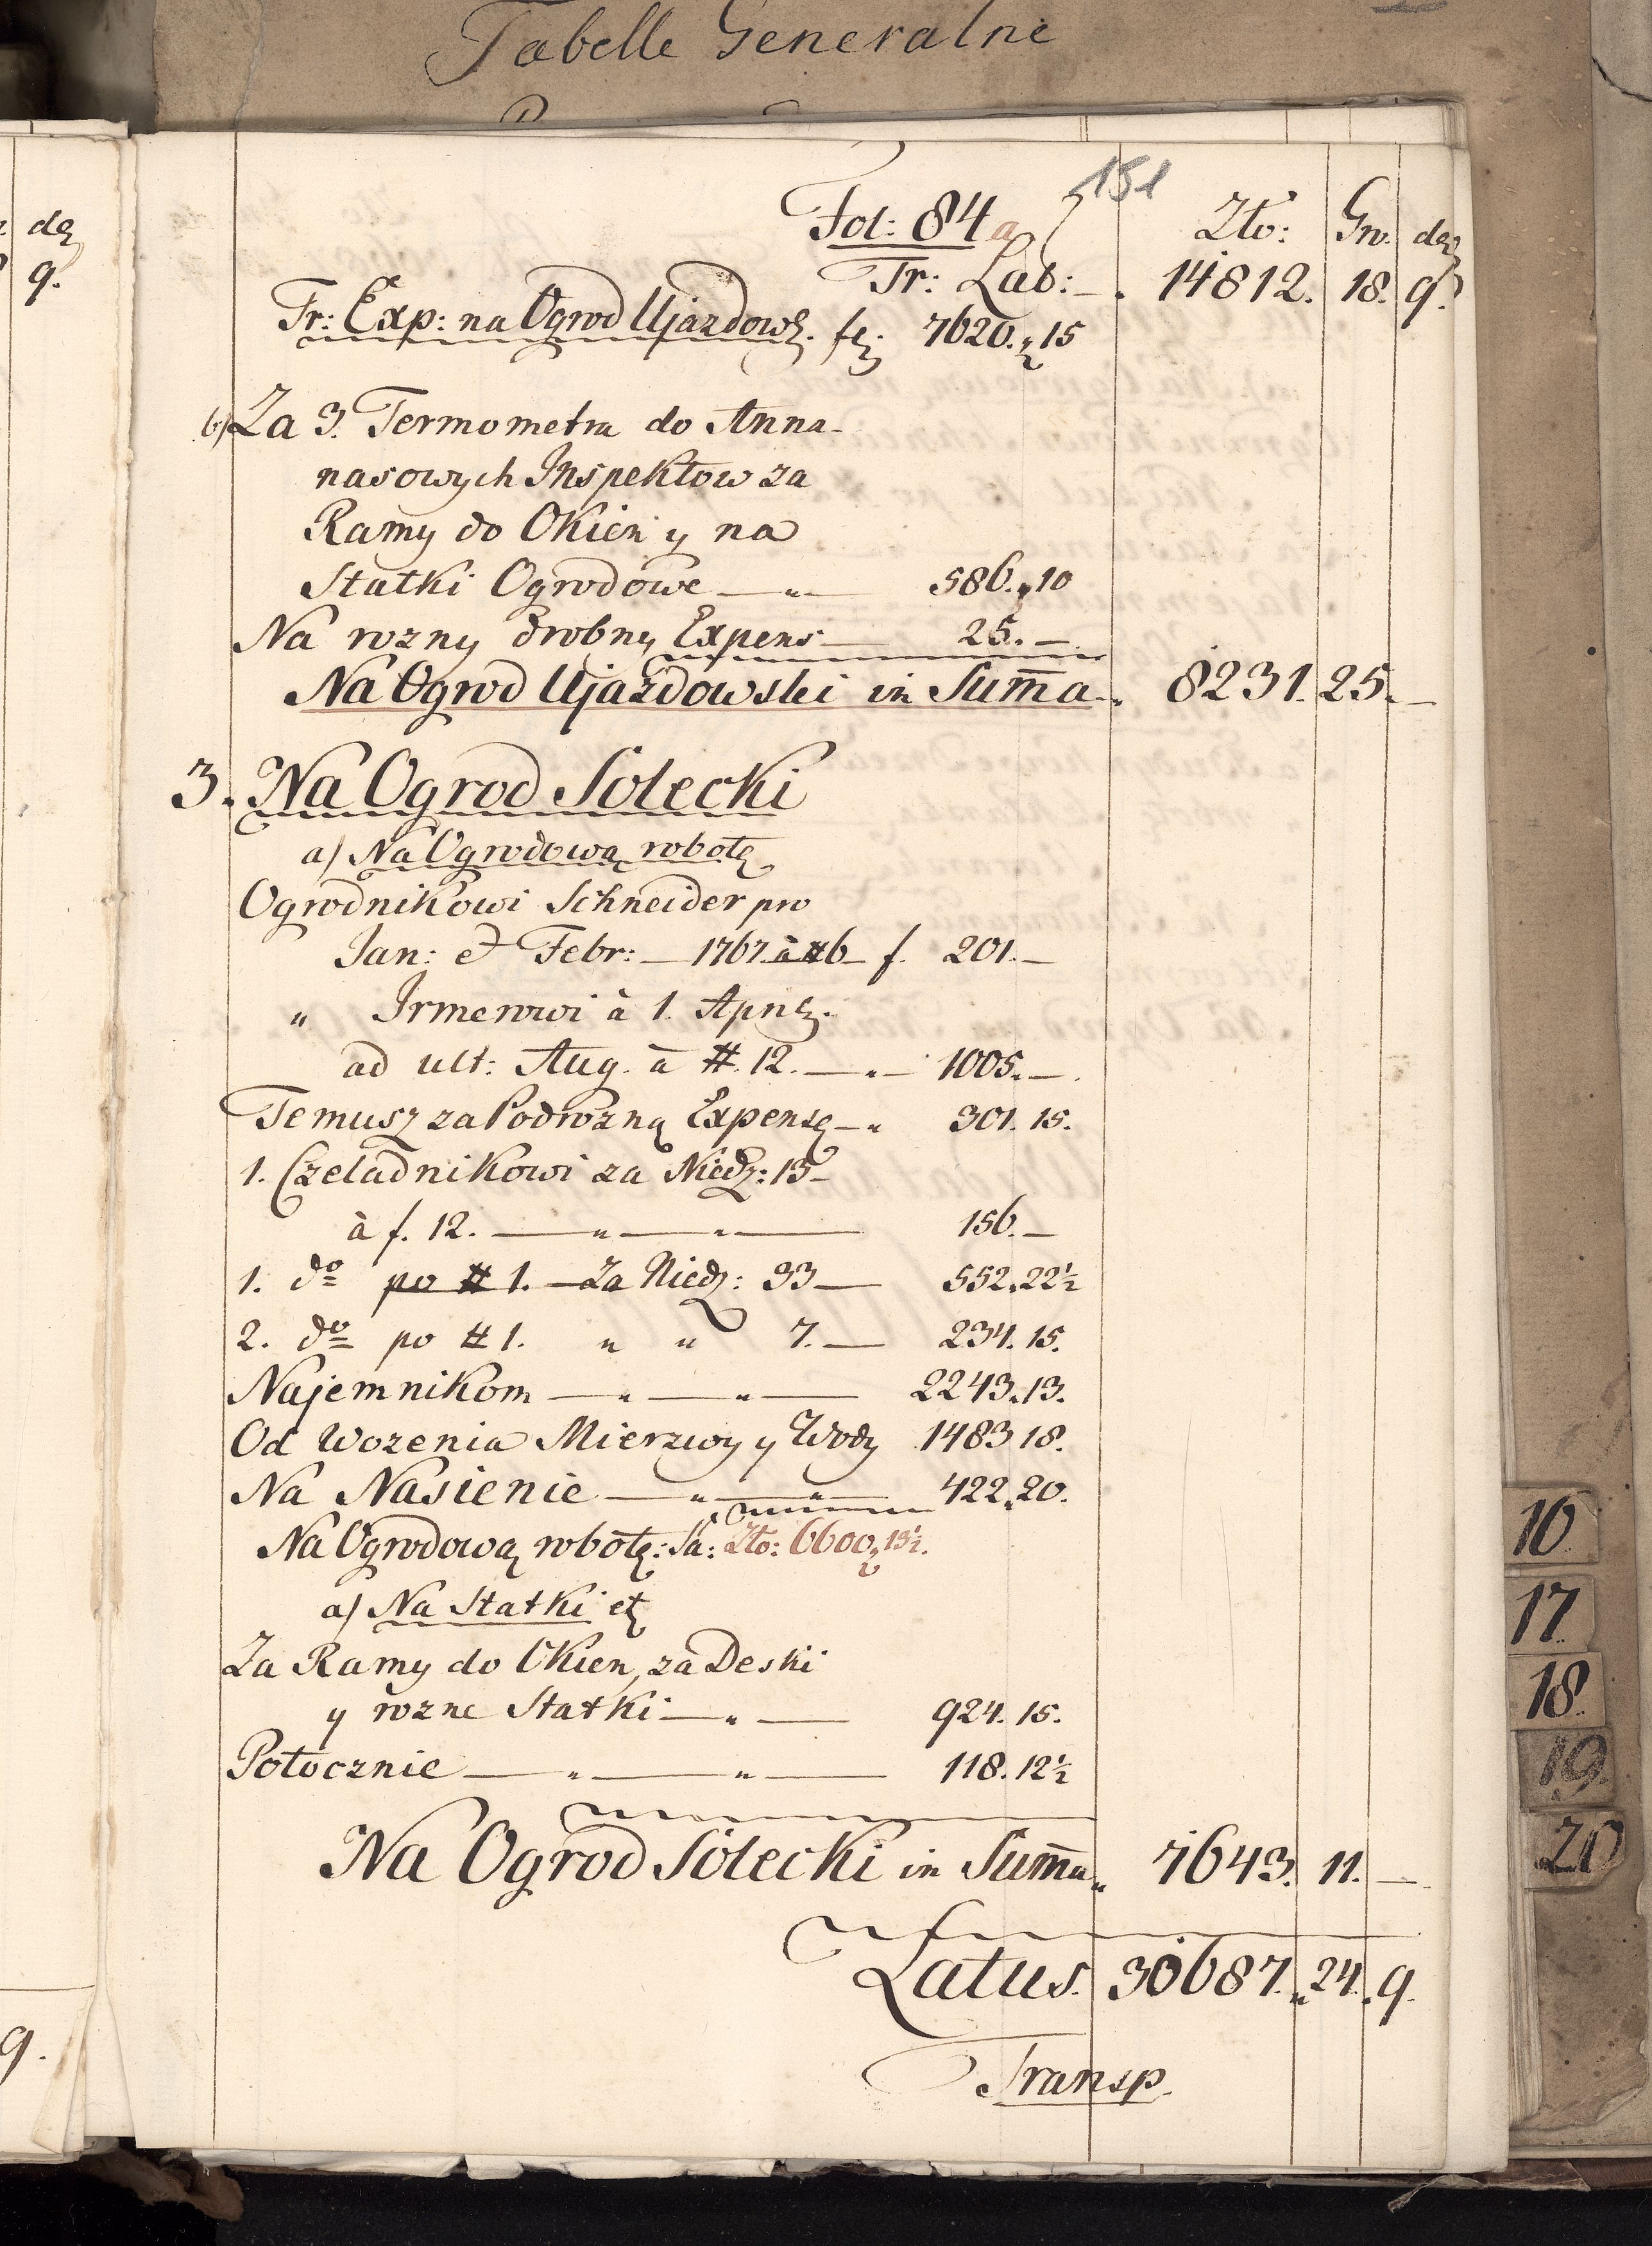 Tabelle Generalne
151
Fol: 84 a
Zło: Gro. den
Tr: Lab: 14812. 18. 9.
Tr: Exp: na Ogrod Ujazdows. fl: 7620. 15
b) Za 3. Termometra do Anna-
nasowych Inspektow za
Ramy do Okien y na
Statki Ogrodowe — " — 586. 10
Na rozny drobny Expens — 25. —
Na Ogrod Ujazdowski in Sum̄a 8231. 25. —
3. Na Ogrod Solecki
a) Na Ogrodową robotę
Ogrodnikowi Schneider pro
Jan: et Febr: — 1767. à # 6 — f. 201. —
" Irmerowi à 1. Apr.
ad ult: Aug. à #. 12. — " — 1005. —
Temusz za Podrozną Expensę — " 301. 15.
1. Czeladnikowi za Niedz: 13 —
à f. 12. — " — " — 156. —
1. do po # 1. — Za Niedz: 33 — 552. 22½
2. do po # 1. " " 7. — 234. 15.
Najemnikom — " — " — 2243. 13.
Od Wozenia Mierzwy y Wody 1483 18.
Na Nasienie — " — " — 422. 20.
Na Ogrodową robotę: Sa: Zło: 6600. 13½.
a) Na Statki etc
Za Ramy do Okien, za Deski
y rozne Statki — " — 924. 15.
Potocznie — " — " — 118. 12½
Na Ogrod Solecki in Sum̄a 7643. 11. —
Latus. 30687. 24. 9.
Transp.
den
9.
9.
16.
17.
18.
19.
20